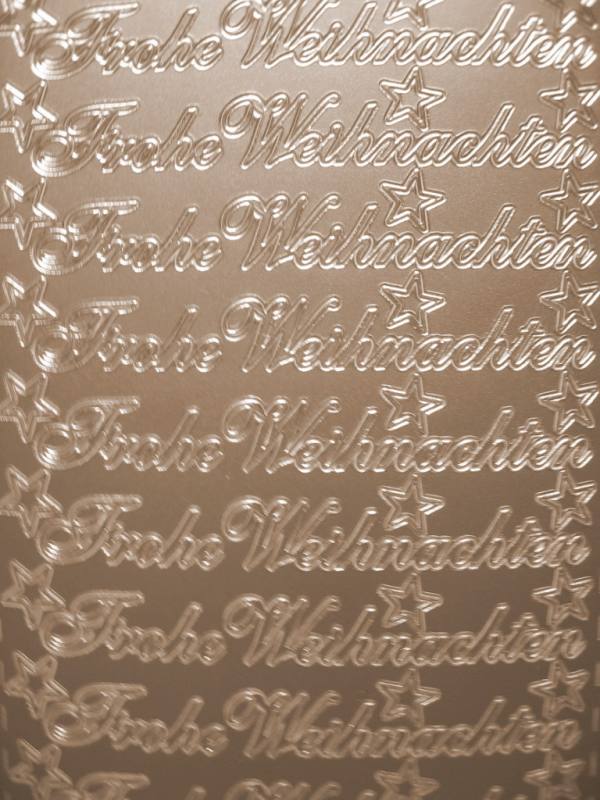 Frohe Weihnachten
Frohe Weihnachten
Frohe Weihnachten
Frohe Weihnachten
Frohe Weihnachten
Frohe Weihnachten
Frohe Weihnachten
Frohe Weihnachten